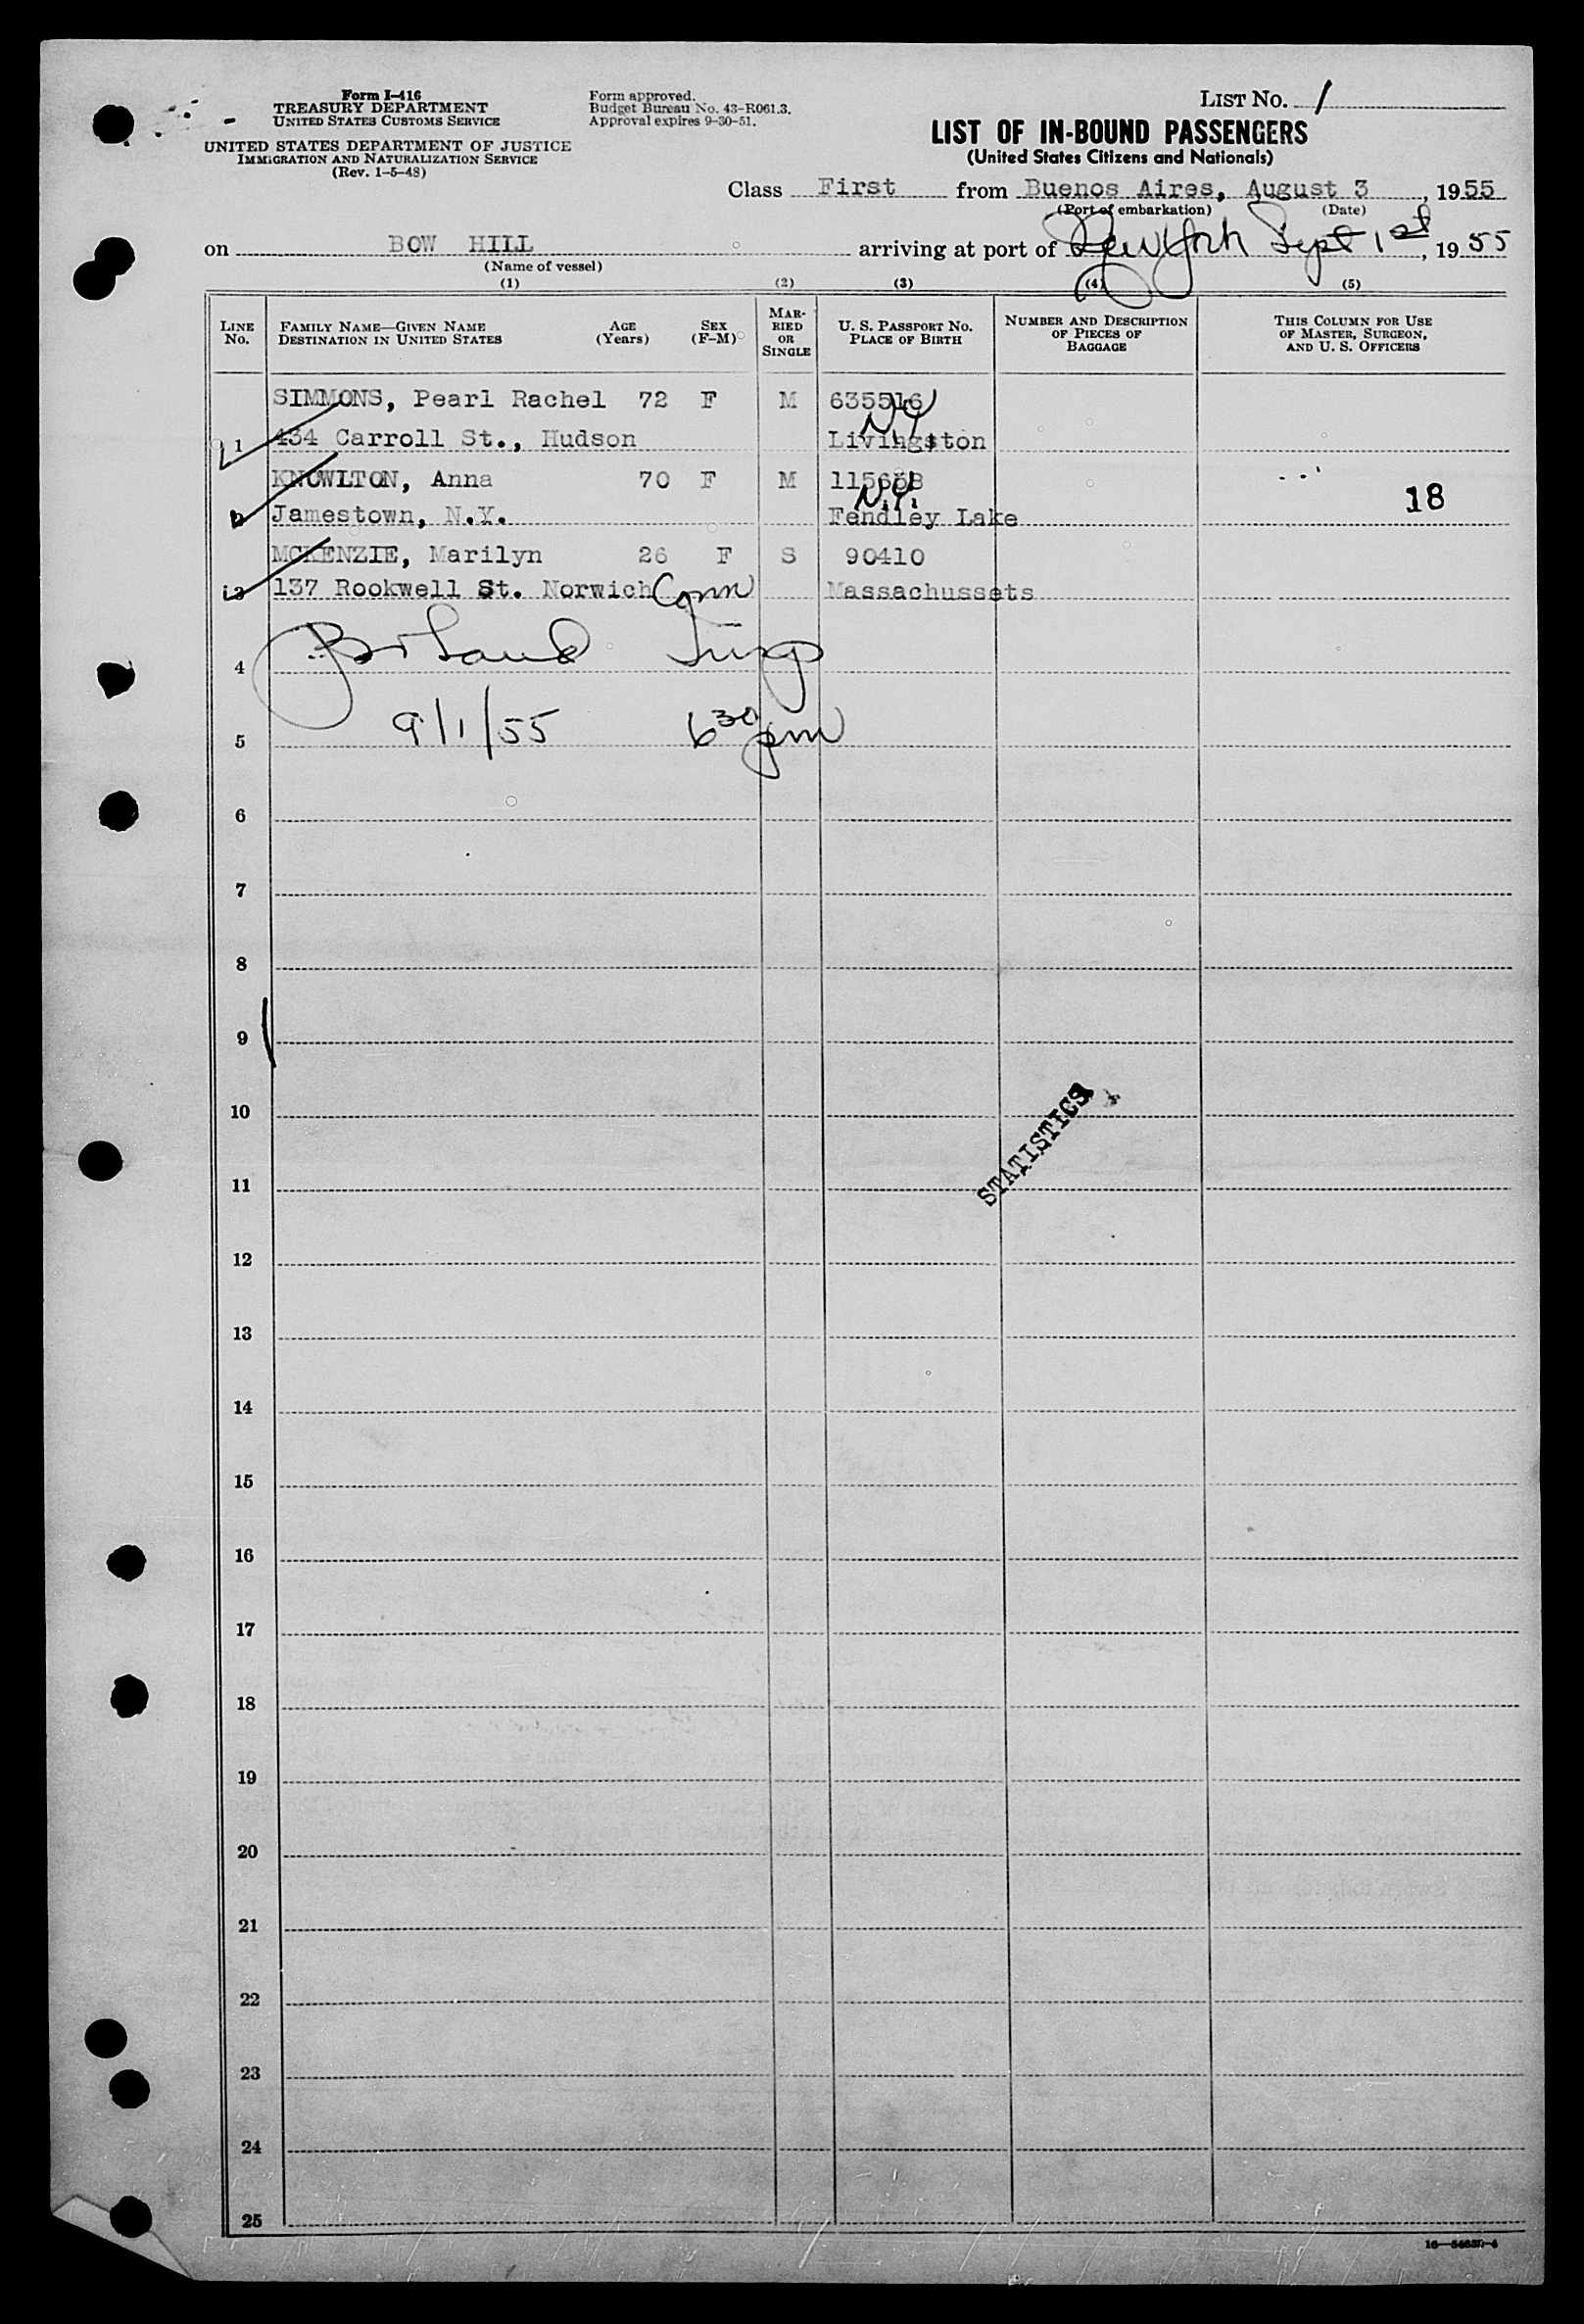 Form I-416
TREASURY DEPARTMENT
UNITED STATES CUSTOMS SERVICE
UNITED STATES DEPARTMENT OF JUSTICE
IMMIGRATION AND NATURALIZATION SERVICE
(Rev. 1-5-48)
Form approved.
Budget Bureau No. 43-R061.3.
Approval expires 9-30-51.
LIST No. 1
LIST OF IN-BOUND PASSENGERS
(United States Citizens and Nationals)
Class First from Buenos Aires, August 3, 1955
(Port of embarkation) (Date)
on BOW HILL arriving at port of New York Sept 1st, 1955
(Name of vessel)
(1) (2) (3) (4) (5)
LINE No. FAMILY NAME—GIVEN NAME DESTINATION IN UNITED STATES AGE (Years) SEX (F-M) MARRIED OR SINGLE U. S. PASSPORT No. PLACE OF BIRTH NUMBER AND DESCRIPTION OF PIECES OF BAGGAGE THIS COLUMN FOR USE OF MASTER, SURGEON, AND U. S. OFFICERS
SIMMONS, Pearl Rachel 72 F M 635516
N.Y.
1 434 Carroll St., Hudson Livingston
KNOWLTON, Anna 70 F M
N.Y. 18
2 Jamestown, N.Y. Fendley Lake
MCKENZIE, Marilyn 26 F S 90410
3 137 Rookwell St. Norwich Conn Massachussets
4
9/1/55 6 30 pm
5
6
7
8
9
10
STATISTICS
11
12
13
14
15
16
17
18
19
20
21
22
23
24
25